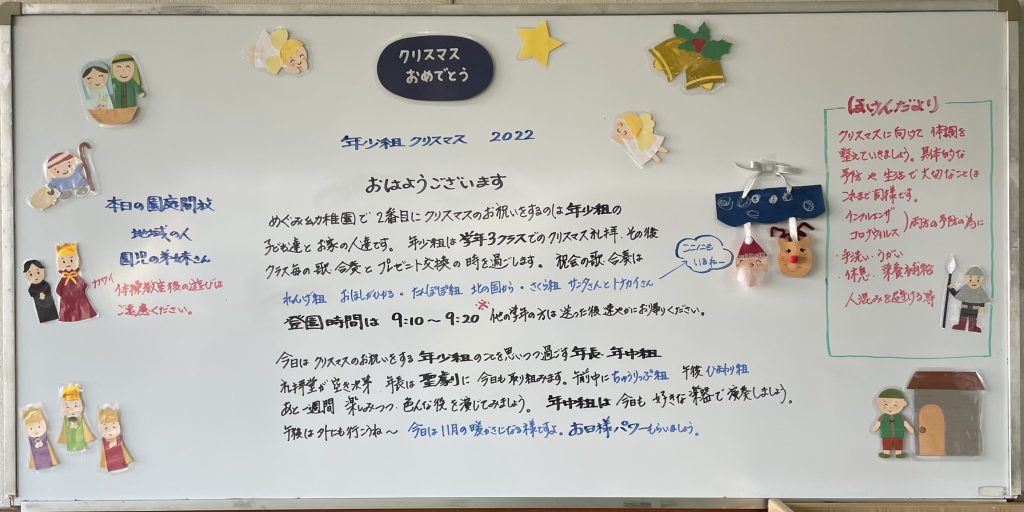 クリスマス
おめでとう
年少組 クリスマス 2022
おはようございます
めぐみ幼稚園で2番目にクリスマスのお祝いをするのは年少組の
子ども達とお家の人達です。年少組は学年3クラスでのクリスマス礼拝、その後
クラス毎の歌、合奏とプレゼント交換の時を過ごします。祝会の歌、合奏は
れんげ組 おほしがひかる・たんぽぽ組 北の国から・さくら組 サンタさんとトナカイさん
ここにも
いるねー
登園時間は 9:10～9:20 ※他の学年の方は送った後速やかにお帰りください。
今日はクリスマスのお祝いをする年少組のことを思いつつ過ごす年長、年中組
礼拝堂が空き次第、年長は聖劇に今日も取り組みます。午前中にちゅうりっぷ組 午後ひまわり組
あと一週間 楽しみつつ、色んな役を演じてみましょう。年中組は今日も好きな楽器で演奏しましょう。
午後は外にも行こうね～ 今日は11月の暖かさになる様ですよ。お日様パワーもらいましょう。
本日の園庭開放
地域の人
園児の弟妹さん
体操教室後の遊びは
ご遠慮ください。
ほけんだより
クリスマスに向けて体調を
整えていきましょう。具体的な
予防や生活で大切なことは
これまで同様です。
インフルエンザ
コロナウィルス
両方の予防の為に
・手洗い、うがい
・休息、栄養補給
人混みを避ける等